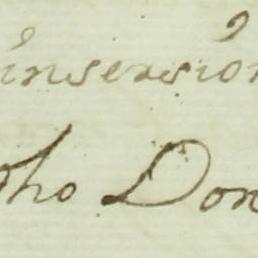 insersion
ho Don